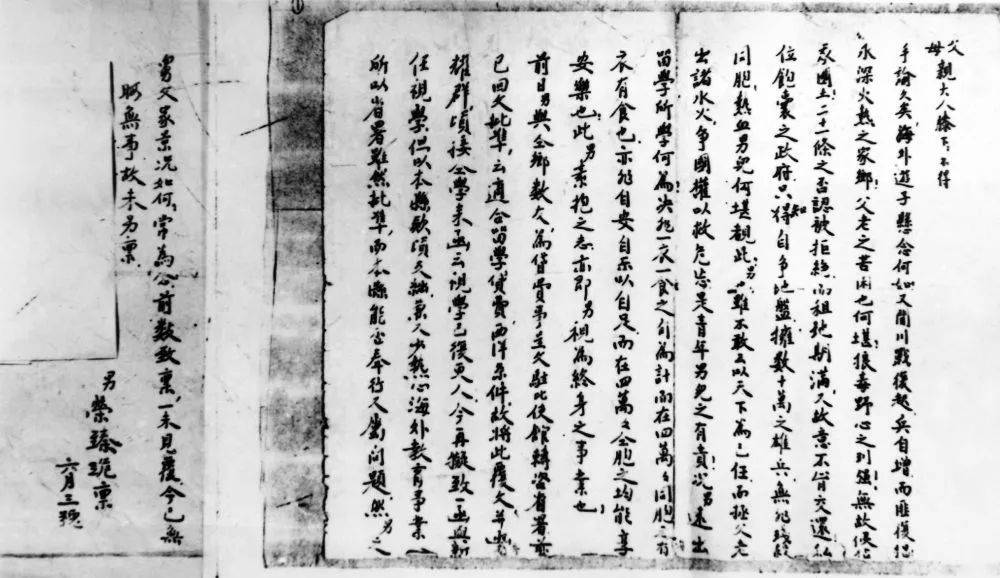 父母親大人膝下：不得
手諭久矣，海外遊子懸念何如，又聞川戰復起，兵自增而匪復猖
水深火熱之家鄉，父老之苦困也何堪狼毒野心之列強無故侵佔
我國土二十一條之否認被拒絕，而租地期滿又故意不肯交還，私
位飽囊之政府只知自爭地盤，擁數十萬之雄兵無非殘殺
同胞，熱血男兒何堪覩此，男雖不敢云以天下為己任，而拯父老
出諸水火，爭國權以救危亡是青年男兒之有責，況男來出
留學所學何為，決非一衣一食之自為計，而在四萬々同胞之有
衣有食也，亦非自安自樂以自足，而在四萬々同胞之均能享
安樂也，此男素抱之志，亦即男視為終身之事業也
前日男與全鄉數人，為貸費事呈文駐比使館轉咨省署，並
已回文批準，云適合留學貸費西洋条件，故將此覆文并
耀群，頃接公學來函，云視學已復更人，今再擬致一函與新
任視學，但以本縣款項久絀，兼人少熱心海外教育事業，
所以省署雖然批準，而本縣能否奉行又屬問題，然男之
男父家景況如何，常為念，前數致稟，一未見覆，今已無
暇無事故未另稟
男
榮臻跪稟
六月三號